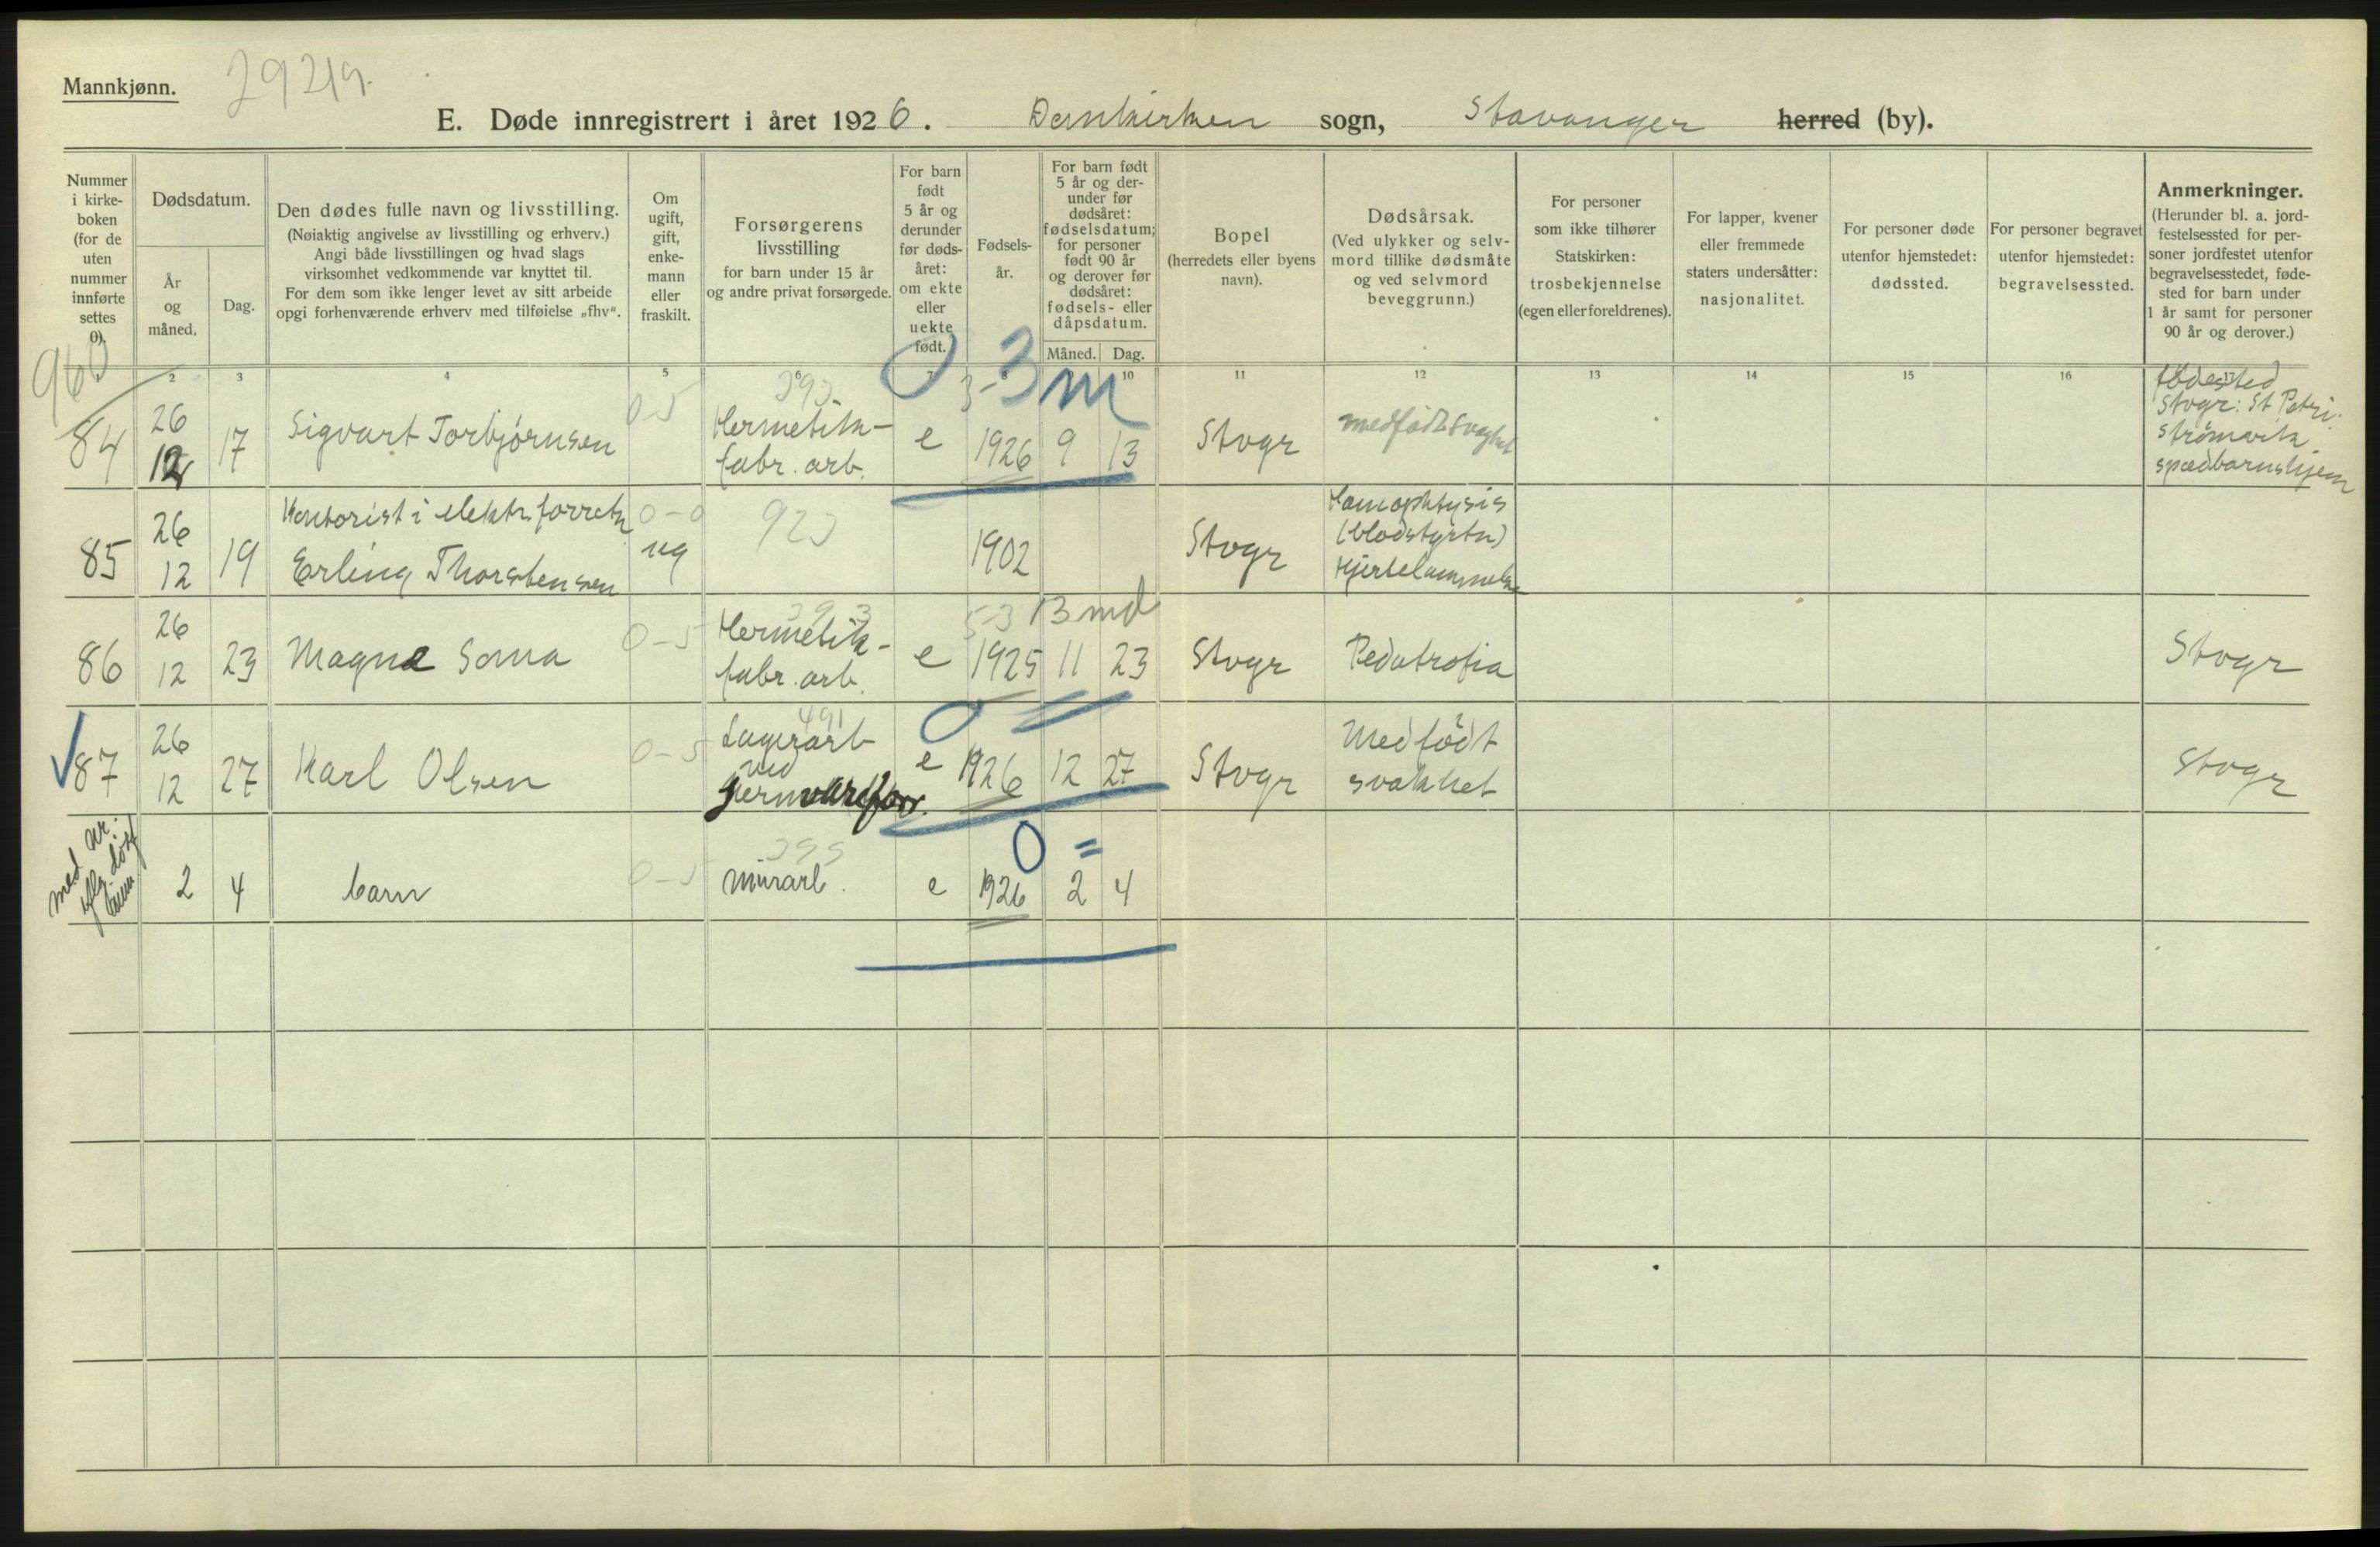 Mannkjønn.
E. Døde innregistrert i året 1926. Domkirken sogn, Stavanger herred (by).
Nummer
i kirke-
boken
(for de
uten
nummer
innførte
settes
0).
Dødsdatum.
År
og
måned.
Dag.
Den dødes fulle navn og livsstilling.
(Nøiaktig angivelse av livsstilling og erhverv.)
Angi både livsstillingen og hvad slags
virksomhet vedkommende var knyttet til.
For dem som ikke lenger levet av sitt arbeide
opgi forhenværende erhverv med tilføielse „fhv“.
Om
ugift,
gift,
enke-
mann
eller
fraskilt.
Forsørgerens
livsstilling
for barn under 15 år
og andre privat forsørgede.
For barn
født
5 år og
derunder
før døds-
året:
om ekte
eller
uekte
født.
Fødsels-
år.
For barn født
5 år og der-
under før
dødsåret:
fødselsdatum;
for personer
født 90 år
og derover før
dødsåret:
fødsels- eller
dåpsdatum.
Måned. Dag.
Bopel
(herredets eller byens
navn).
Dødsårsak.
(Ved ulykker og selv-
mord tillike dødsmåte
og ved selvmord
beveggrunn.)
For personer
som ikke tilhører
Statskirken:
trosbekjennelse
(egen eller foreldrenes).
For lapper, kvener
eller fremmede
staters undersåtter:
nasjonalitet.
For personer døde
utenfor hjemstedet:
dødssted.
For personer begravet
utenfor hjemstedet:
begravelsessted.
Anmerkninger.
(Herunder bl. a. jord-
festelsessted for per-
soner jordfestet utenfor
begravelsesstedet, føde-
sted for barn under
1 år samt for personer
90 år og derover.)
960
2 3 4 5 6 7 8 10 11 12 13 14 15 16 17
0 3 m
84
26
12
17
Sigvart Torbjørnsen
0-5
393
Hermetik-
fabr. arb.
e
1926 9 13
Stvgr
medfødt svaghet
fødested
Stvgr: St Petri.
Strømvik
spædbarnshjem
85
26
12
19
Kontorist i elektr. forretn
Erling Thorstensen
0-0
ug
923
1902
Stvgr
Hæmoptysis
(blodstyrtn)
Hjertelammelse
86
26
12
23
Magne Soma
0-5
393
Hermetik-
fabr. arb.
e
5-3 13 md
1925 11 23
Stvgr
Pedatrofia
Stvgr
87
26
12
27
Karl Olsen
0-5
491
Lagerarb
ved
jernvareforr.
e
0
1926 12 27
Stvgr
Medfødt
svakhet
Stvgr
med nr.
2 4
barn
0-5
murarb.
e
0 =
1926 2 4